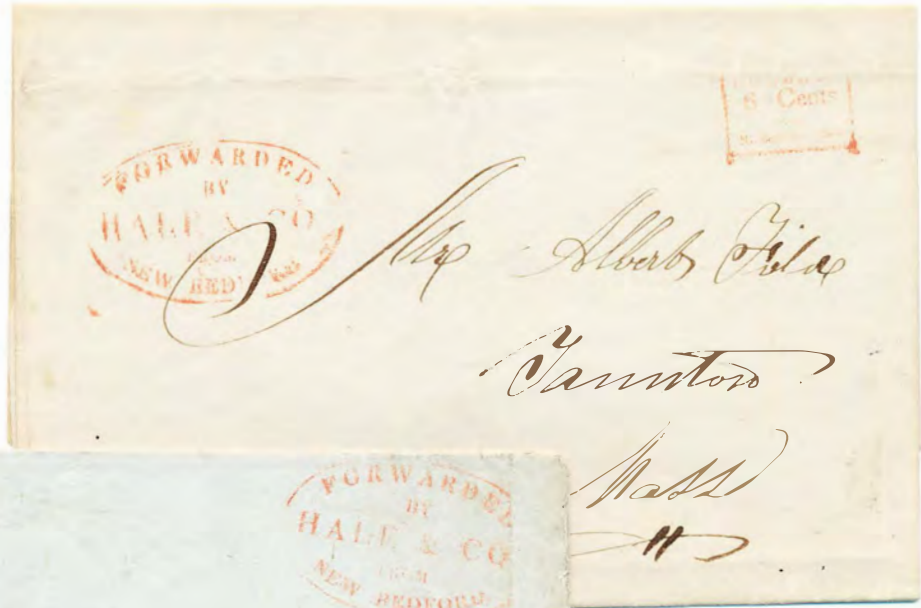 6 Cents
FORWARDED
BY
HALE & CO
FROM
NEW BEDFORD
Mr Albert Field
Taunton
Mass
FORWARDED
BY
HALE & CO
FROM
NEW BEDFORD